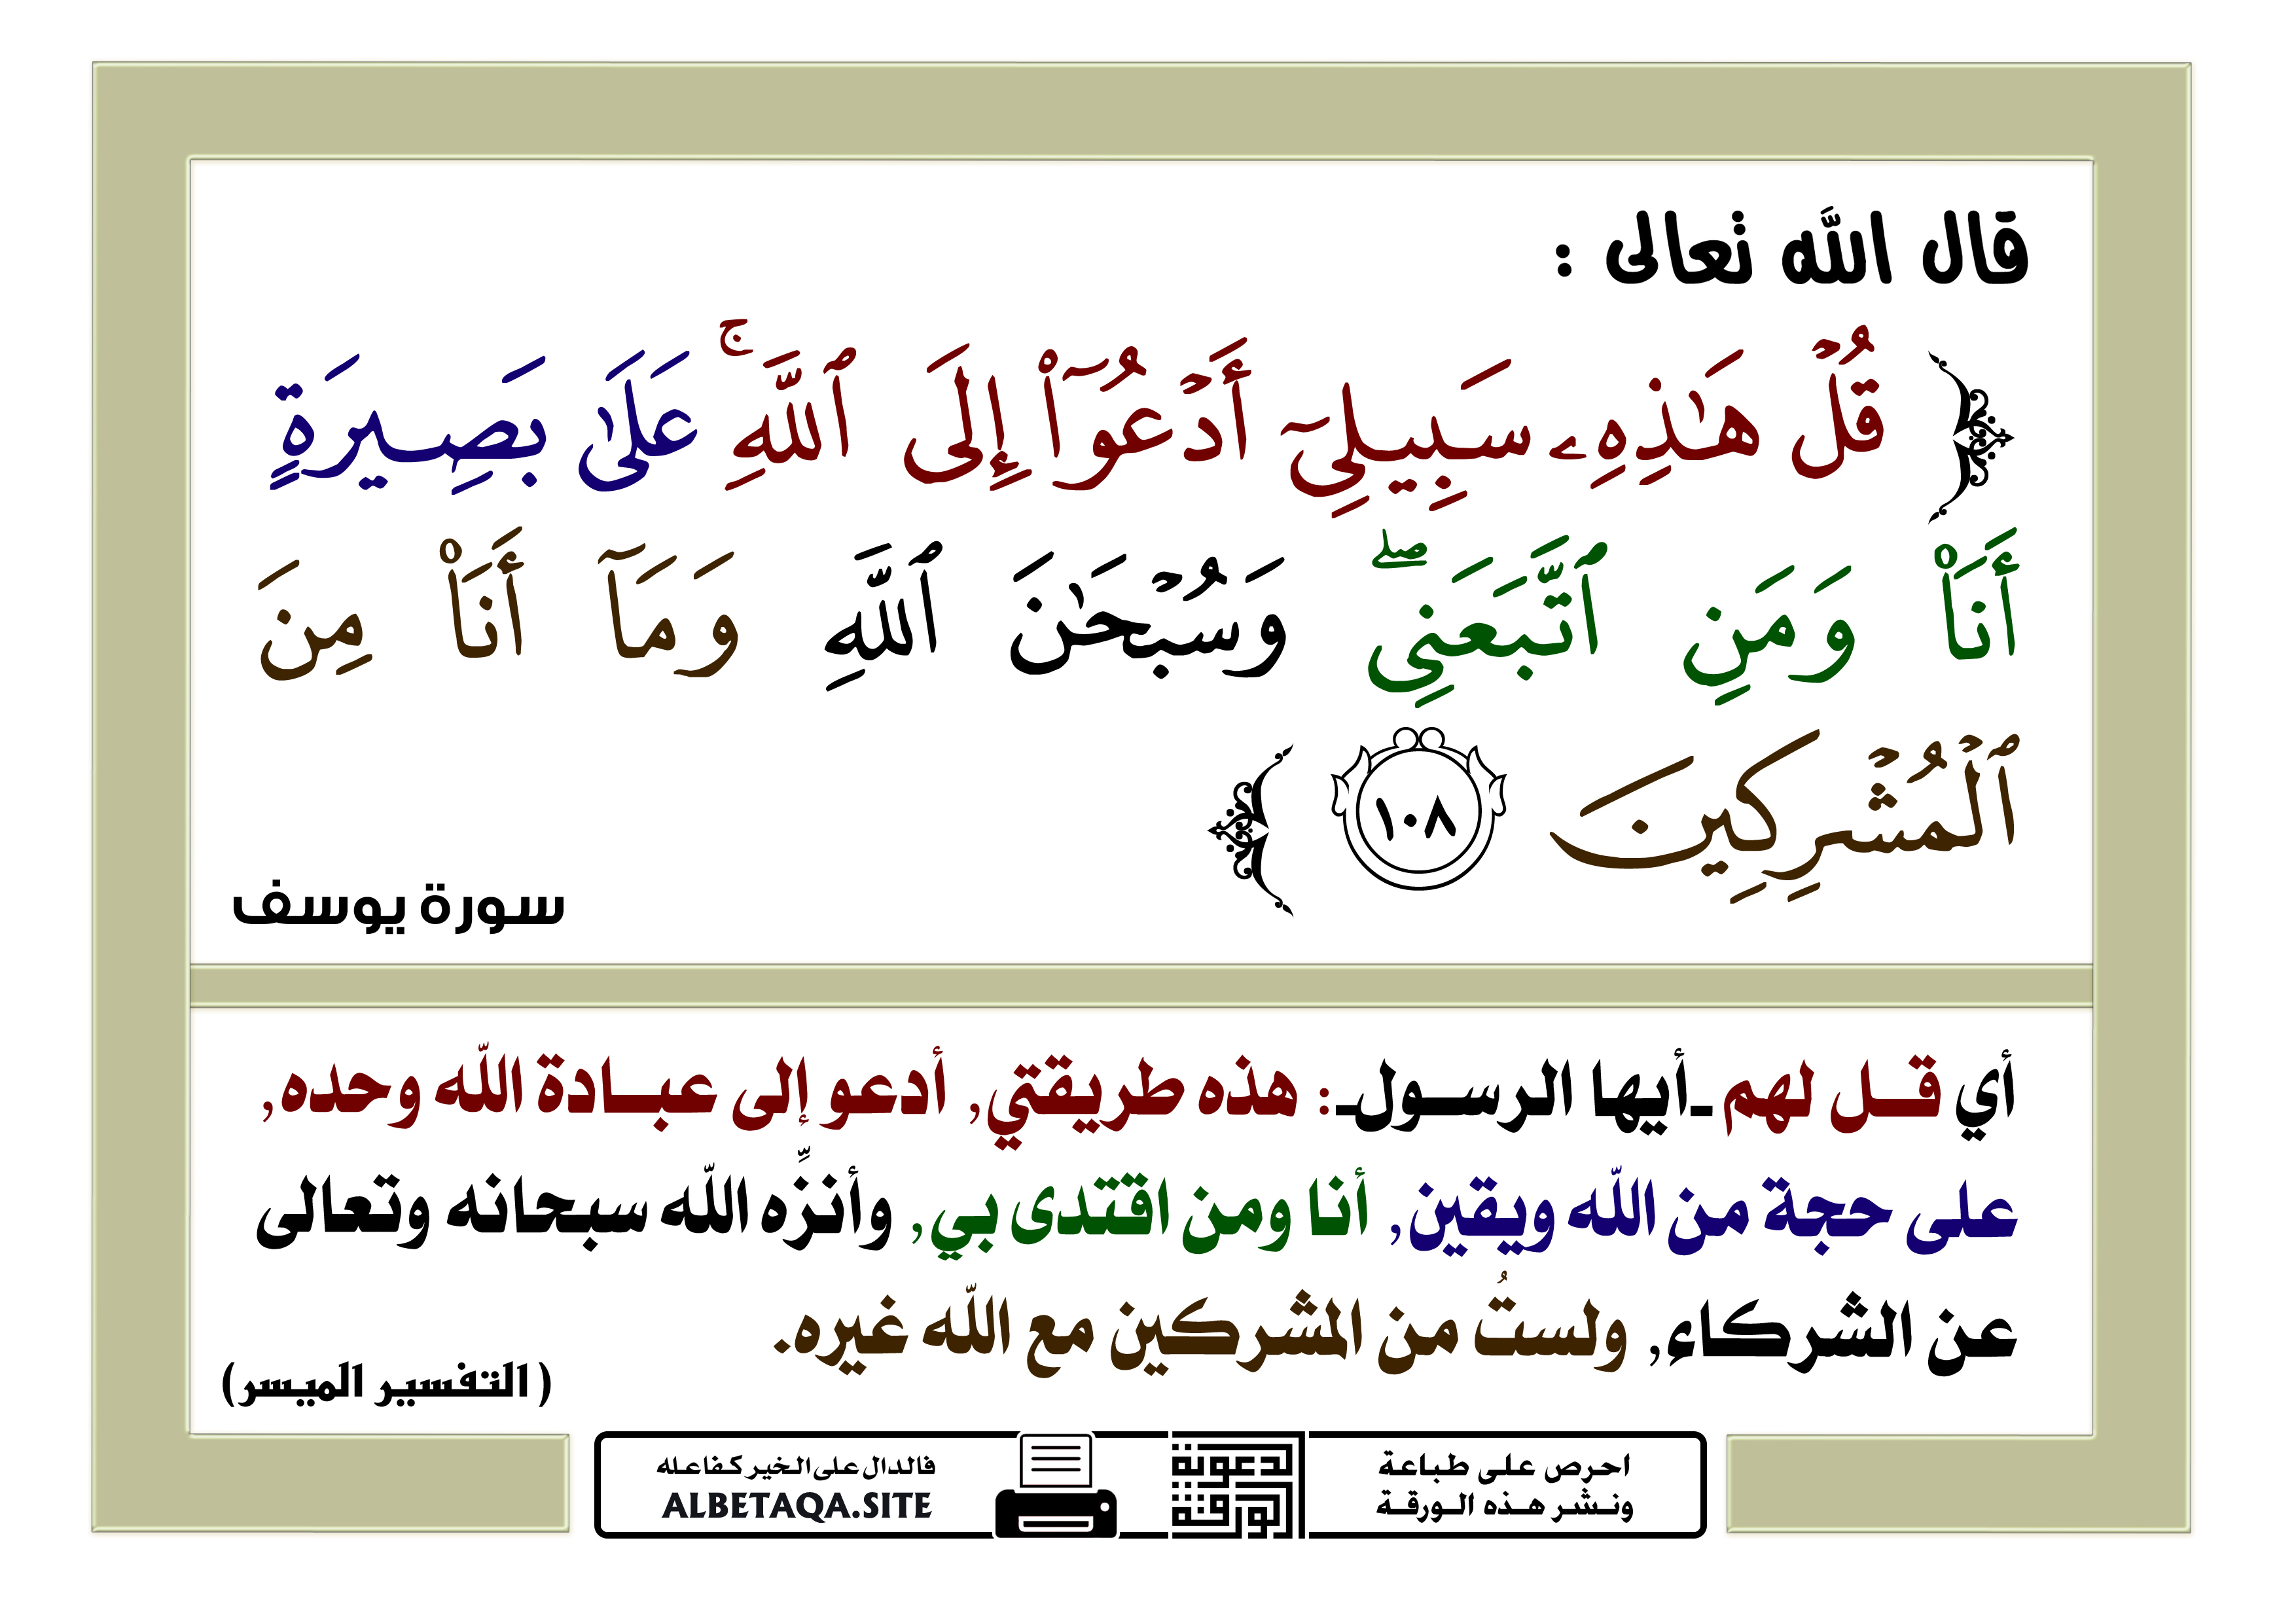 قال الله تعالى :
﴿ قُلۡ هَٰذِهِۦ سَبِيلِيٓ أَدۡعُوٓاْ إِلَى ٱللَّهِۚ عَلَىٰ بَصِيرَةٍ
أَنَا۠ وَمَنِ ٱتَّبَعَنِيۖ وَسُبۡحَٰنَ ٱللَّهِ وَمَآ أَنَا۠ مِنَ
ٱلۡمُشۡرِكِينَ ١٠٨ ﴾
سورة يوسف
أي قـل لهم ـأيها الرسولـ: هذه طريقتي, أدعو إلى عبادة الله وحده,
على حجة من الله ويقين, أنا ومن اقتدى بي, وأنزِّه الله سبحانه وتعالى
عن الشركاء, ولستُ من المشركين مع الله غيره.
(التفسير الميسر)
احرص على طباعة
ونشر هذه الورقة
الورقة
الدعوية
فالدال على الخير كفاعله
ALBETAQA.SITE